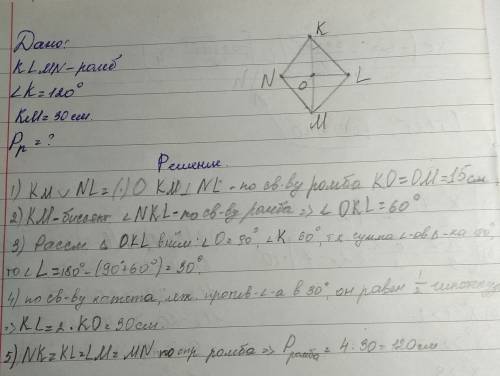 Дано:
KLMN-ромб
∠K=120°
KM=30см.
Pр=?
K
N
L
O
M
Решение
1) KM ∨ NL=(·)O KM⊥NL - по св-ву ромба KO=OM=15см
2) KM-биссект ∠NKL-по св-ву ромба=>∠OKL=60°
3) Рассм △OKL в нём: ∠O=90°, ∠K 60°, тк сумма ∠-ов △-ка
то ∠L=180°-(90°+60°)=30°
4) по св-ву катета, леж. против ∠-а в 30°, он равен 1/2 гипотенузы
=> KL=2·KO=30см.
5) NK=KL=LM=MN по опр. ромба=> Pромба=4·30=120см